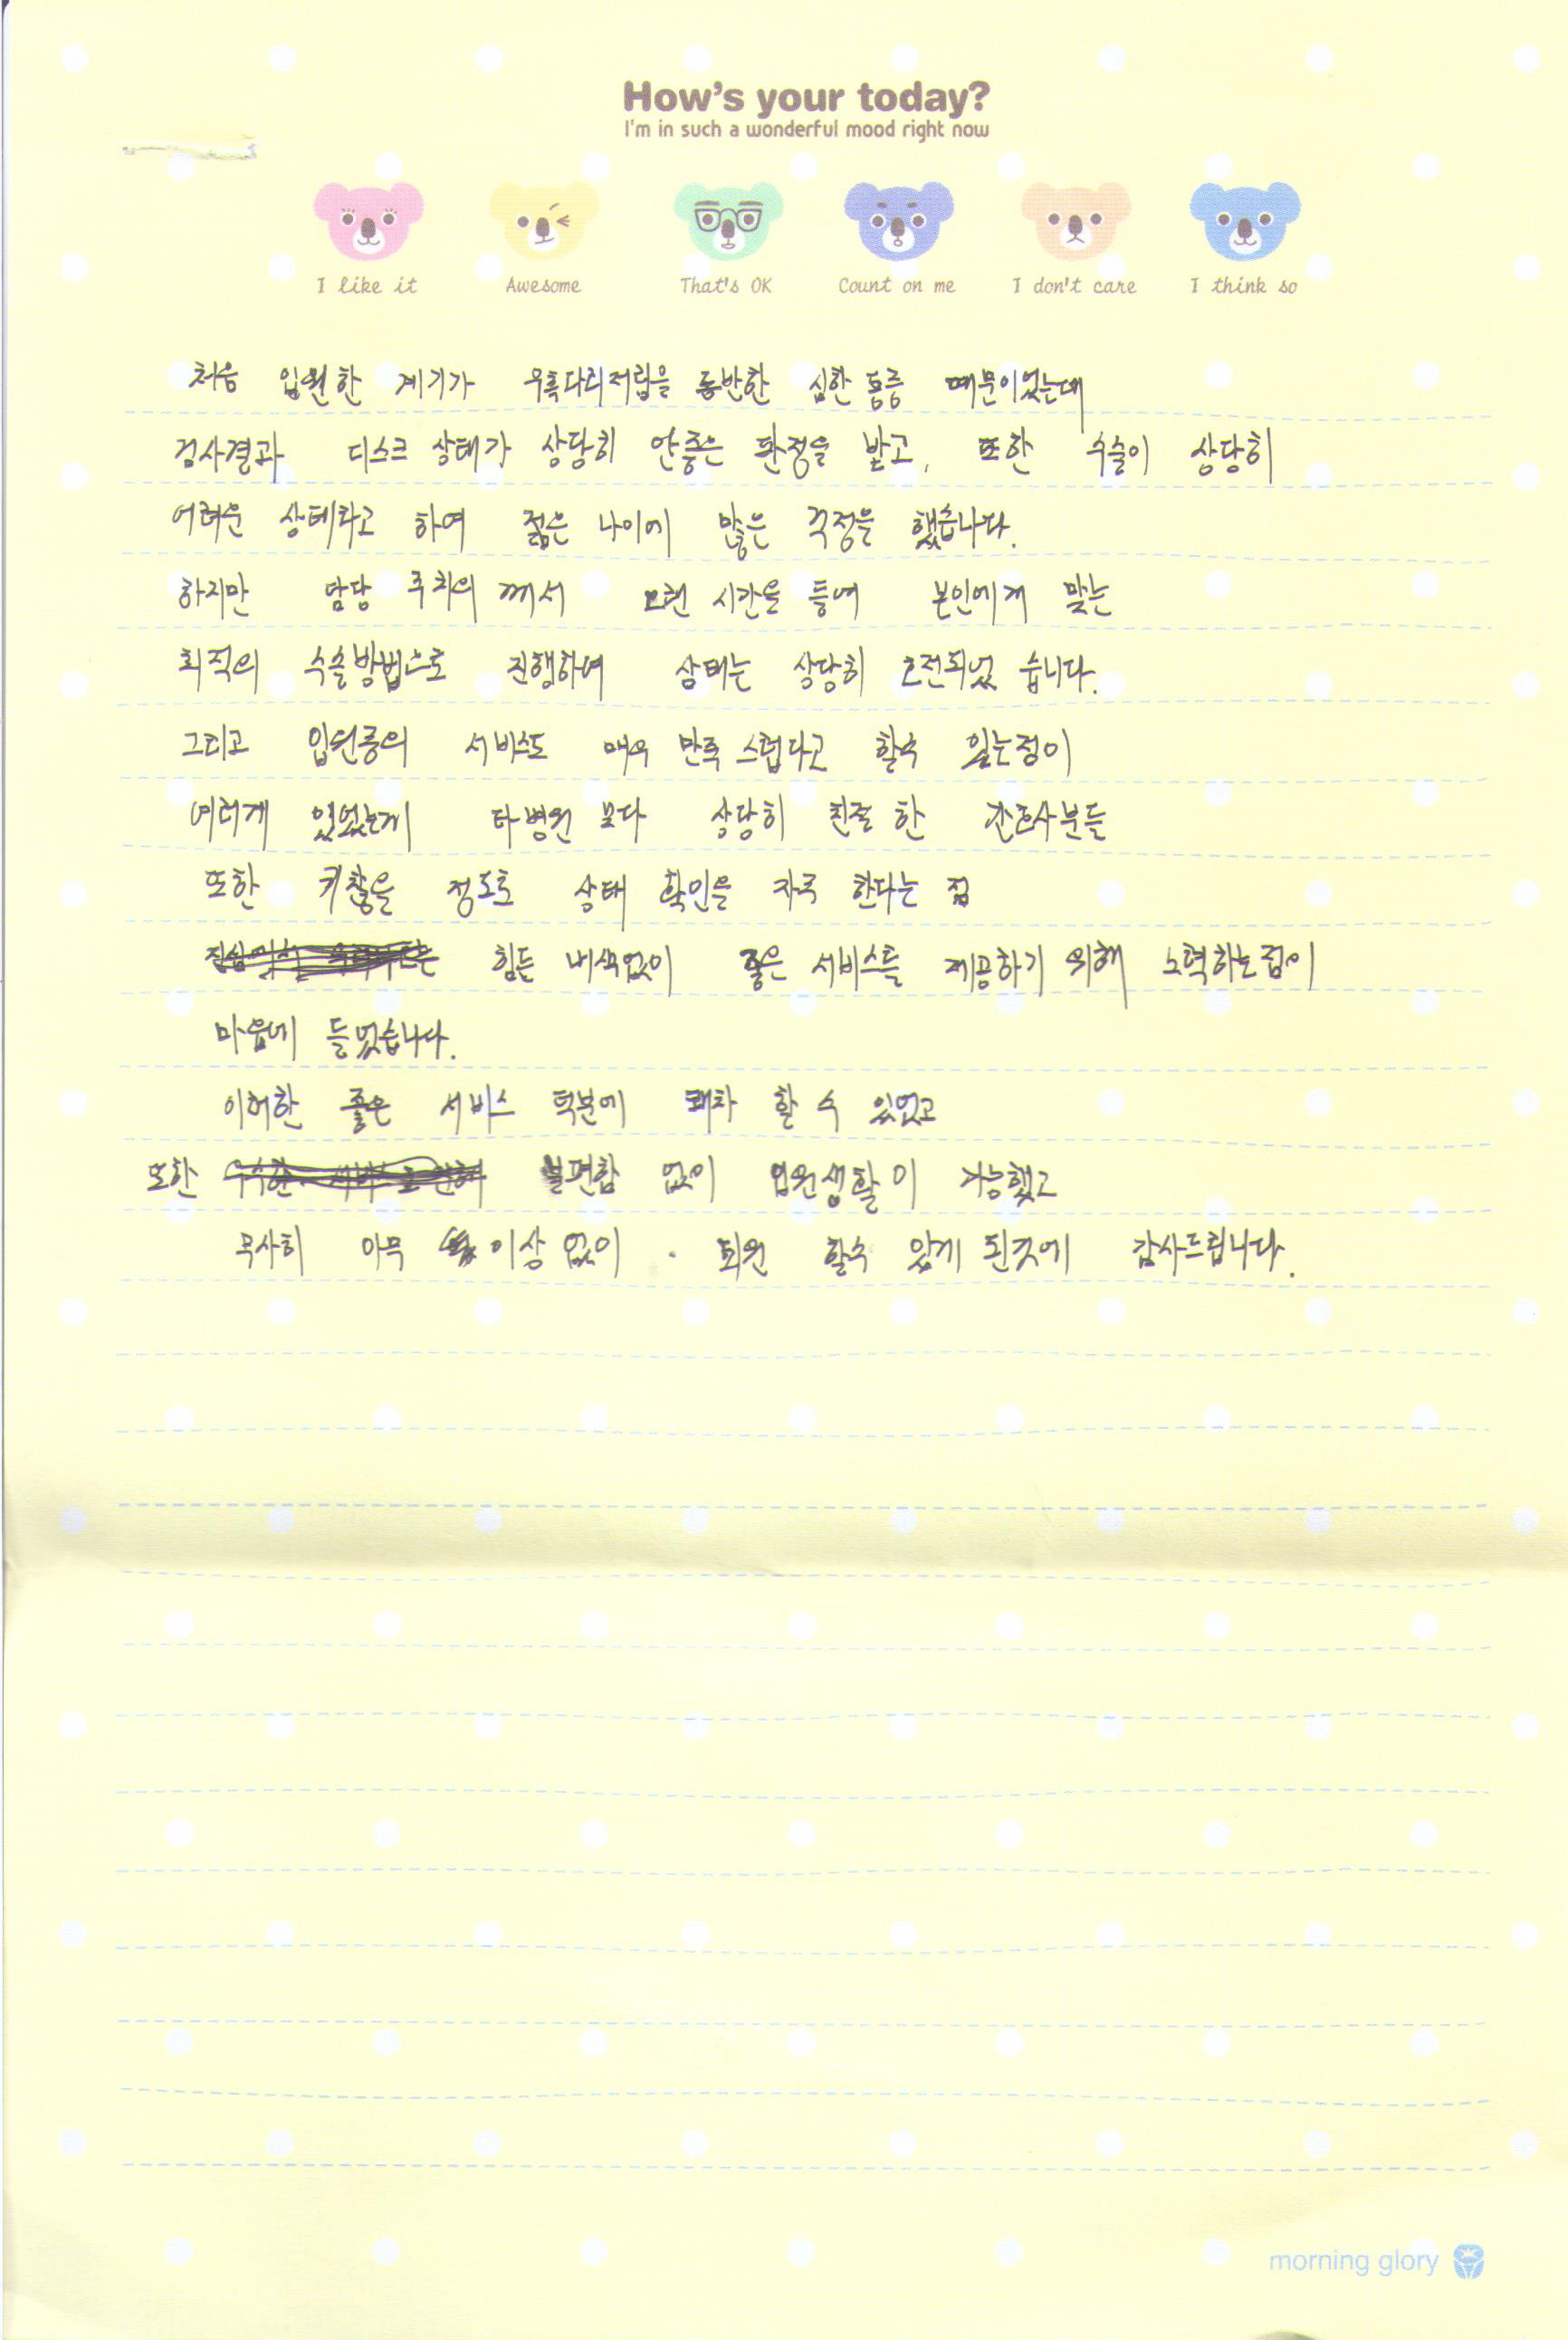 How's your today?
I'm in such a wonderful mood right now
I like it Awesome That's OK Count on me I don't care I think so
처음 입원한 계기가 우측다리저림을 동반한 심한 통증 때문이었는데
검사결과 디스크 상태가 상당히 안좋은 판정을 받고, 또한 수술이 상당히
어려운 상태라고 하여 젊은 나이에 많은 걱정을 했습니다.
하지만 담당 주치의 께서 오랜 시간을 들여 본인에게 맞는
최적의 수술방법으로 진행하여 상태는 상당히 호전되었 습니다.
그리고 입원중의 서비스도 매우 만족 스럽다고 할수 있는점이
여러개 있었는데 타병원 보다 상당히 친절 한 간호사분들
또한 귀찮을 정도로 상태 확인을 자주 한다는 점
힘든 내색없이 좋은 서비스를 제공하기 위해 노력하는점이
마음에 들었습니다.
이러한 좋은 서비스 덕분에 쾌차 할 수 있었고
또한 불편함 없이 입원생활이 가능했고
무사히 아무 이상 없이 퇴원 할수 있게 된것에 감사드립니다.
morning glory